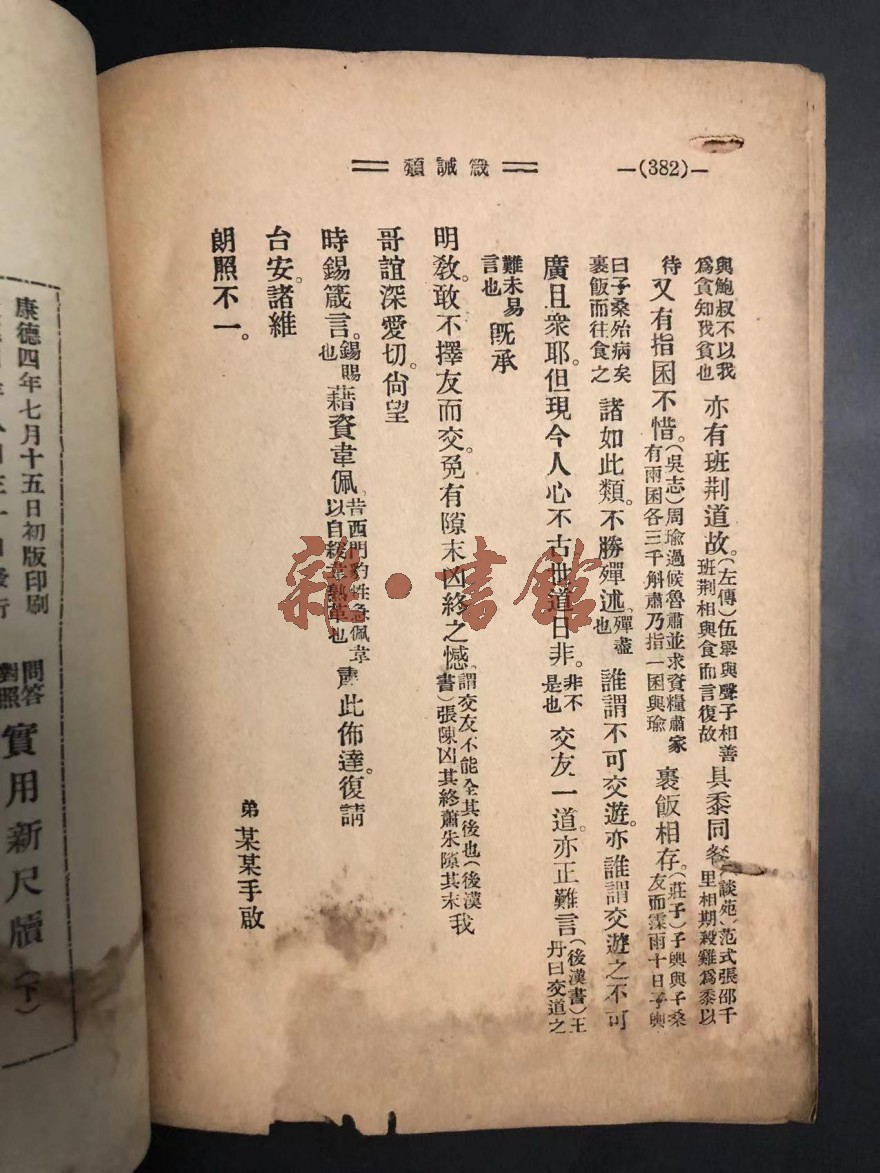 —(382)—
箴誡類
與鮑叔不以我爲貪知我貧也亦有班荆道故。(左傳)伍舉與聲子相善班荆相與食而言復故具黍同餐(談苑)范式張邵千里相期殺雞爲黍以
待又有指囷不惜。(吳志)周瑜過候魯肅並求資糧肅家有兩囷各三千斛肅乃指一囷與瑜裹飯相存。(莊子)子輿與子桑友而霖雨十日子輿
曰子桑殆病矣裹飯而往食之諸如此類。不勝殫述。殫盡也誰謂不可交遊。亦誰謂交遊之不可
廣且衆耶。但現今人心不古世道日非。非不是也交友一道。亦正難言(後漢書)王丹曰交道之
難未易言也旣承
明敎。敢不擇友而交。免有隙末凶終之憾。謂交友不能全其後也(後漢書)張陳凶其終蕭朱隙其末我
哥誼深愛切。尙望
時錫箴言。錫賜也藉資韋佩。昔西門豹性急佩韋以自緩韋熟革也肅此佈達。復請
台安。諸維
朗照不一。
弟某某手啟
康德四年七月十五日初版印刷
問答對照實用新尺牘(下)
雜·書館